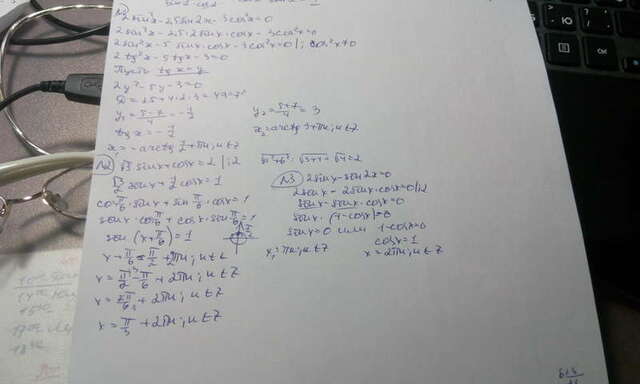 2sin²x-2,5sin2x-3cos²x=0
2sin²x-2,5·2sinx·cosx-3cos²x=0
2sin²x-5sinx·cosx-3cos²x=0 |: cos²x≠0
2tg²x-5tgx-3=0
Пусть tgx=y
2y²-5y-3=0
D=25+4·2·3=49=7²
y₁=\frac{5-7}{4}=-\frac{1}{2}
y₂=\frac{5+7}{4}=3
tgx=-\frac{1}{2}
x₁=-arctg\frac{1}{2}+πn; n∈Z
x₂=arctg3+πn; n∈Z
№2 √3·sinx+cosx=2 |:2
√a²+b²=√3+1=√4=2
\frac{√3}{2}sinx+\frac{1}{2}cosx=1
cos\frac{π}{6}·sinx+sin\frac{π}{6}·cosx=1
sinx·cos\frac{π}{6}+cosx·sin\frac{π}{6}=1
sin(x+\frac{π}{6})=1
x+\frac{π}{6}=\frac{π}{2}+2πn; n∈Z
x=\frac{π}{2}-\frac{π}{6}+2πn; n∈Z
x=\frac{2π}{6}+2πn; n∈Z
x=\frac{π}{3}+2πn; n∈Z
№3 2sinx-sin2x=0
2sinx-2sinx·cosx=0 |:2
sinx-sinx·cosx=0
sinx·(1-cosx)=0
sinx=0 или 1-cosx=0
cosx=1
x₁=πn; n∈Z
x=2πn; n∈Z